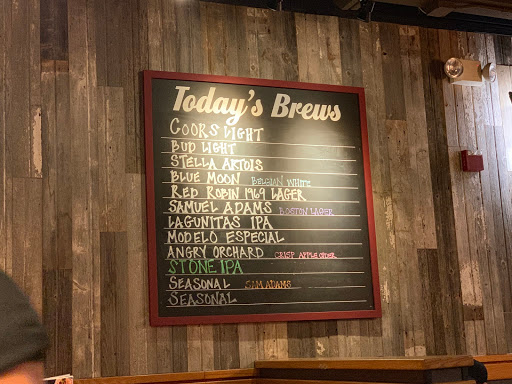 Today's Brews
COORS LIGHT
BUD LIGHT
STELLA ARTOIS
BLUE MOON BELGIAN WHITE
RED ROBIN 1969 LAGER
SAMUEL ADAMS BOSTON LAGER
LAGUNITAS IPA
MODELO ESPECIAL
ANGRY ORCHARD CRISP APPLE CIDER
STONE IPA
SEASONAL SAM ADAMS
SEASONAL